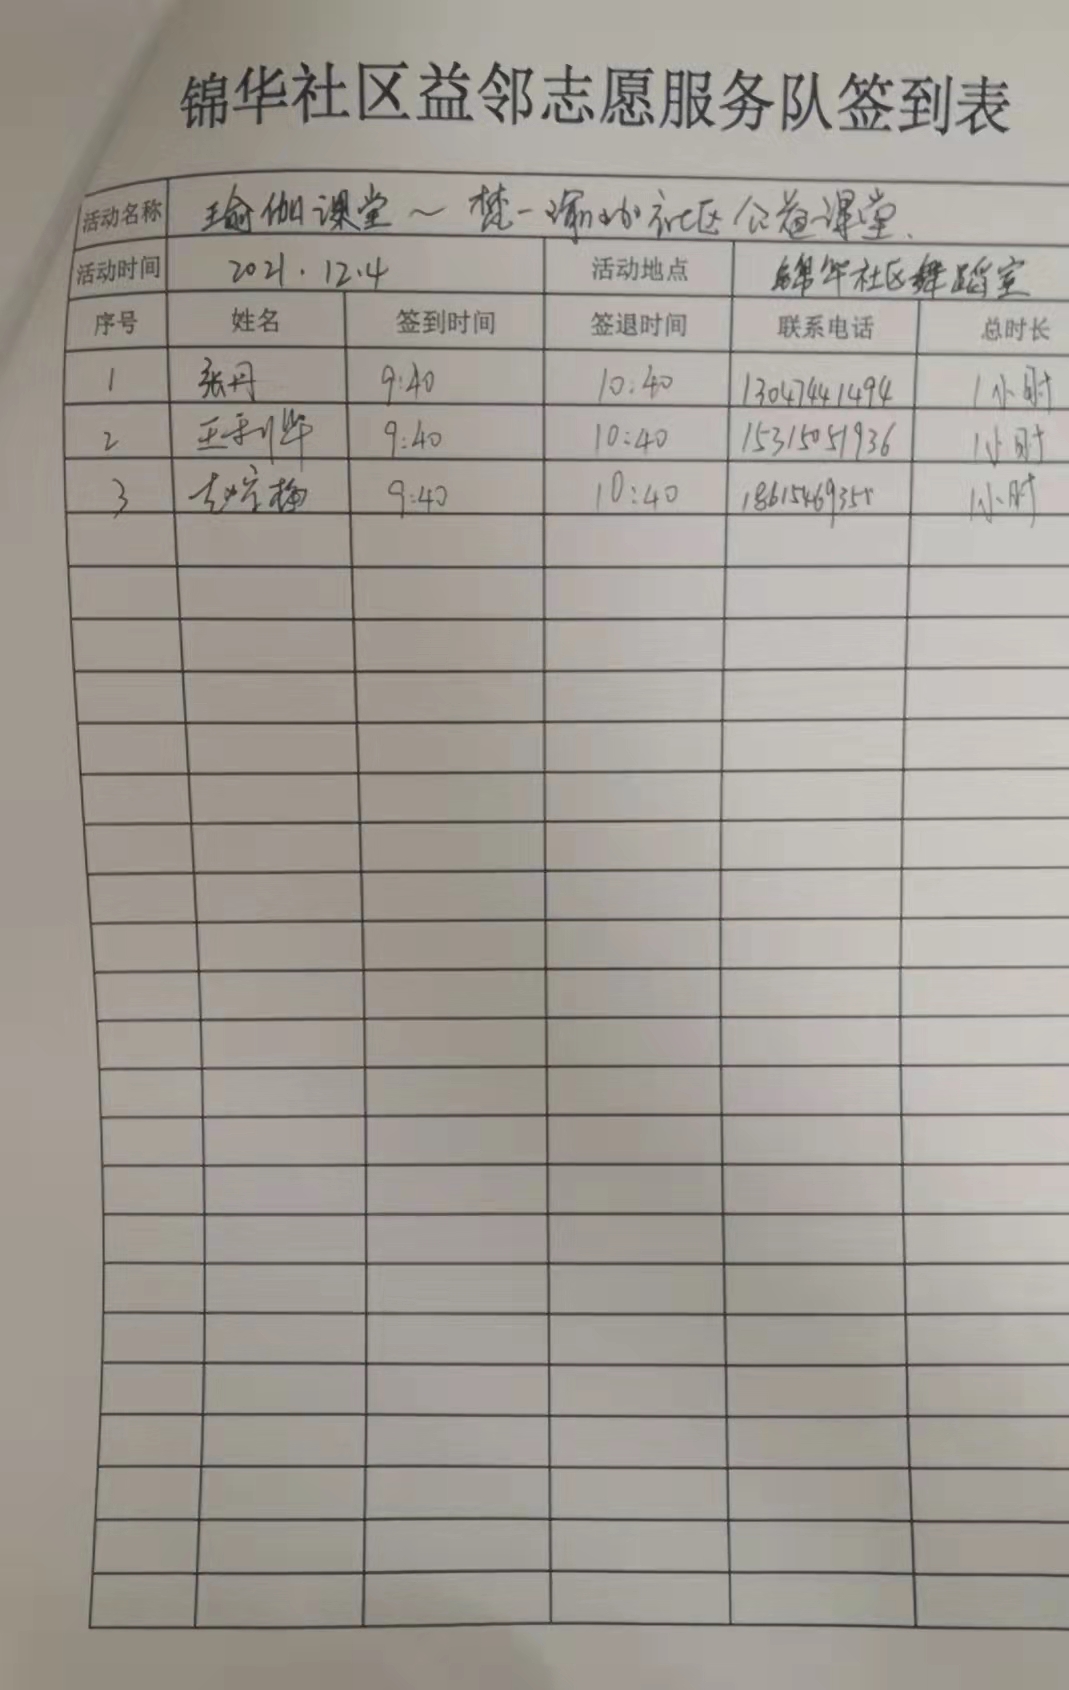 锦华社区益邻志愿服务队签到表
活动名称 瑜伽课堂～梵一瑜伽社区公益课堂
活动时间 2021.12.4 活动地点 锦华社区舞蹈室
序号 姓名 签到时间 签退时间 联系电话 总时长
1 张丹 9:40 10:40 13047441494 1小时
2 王利华 9:40 10:40 15315051936 1小时
3 9:40 10:40 1小时